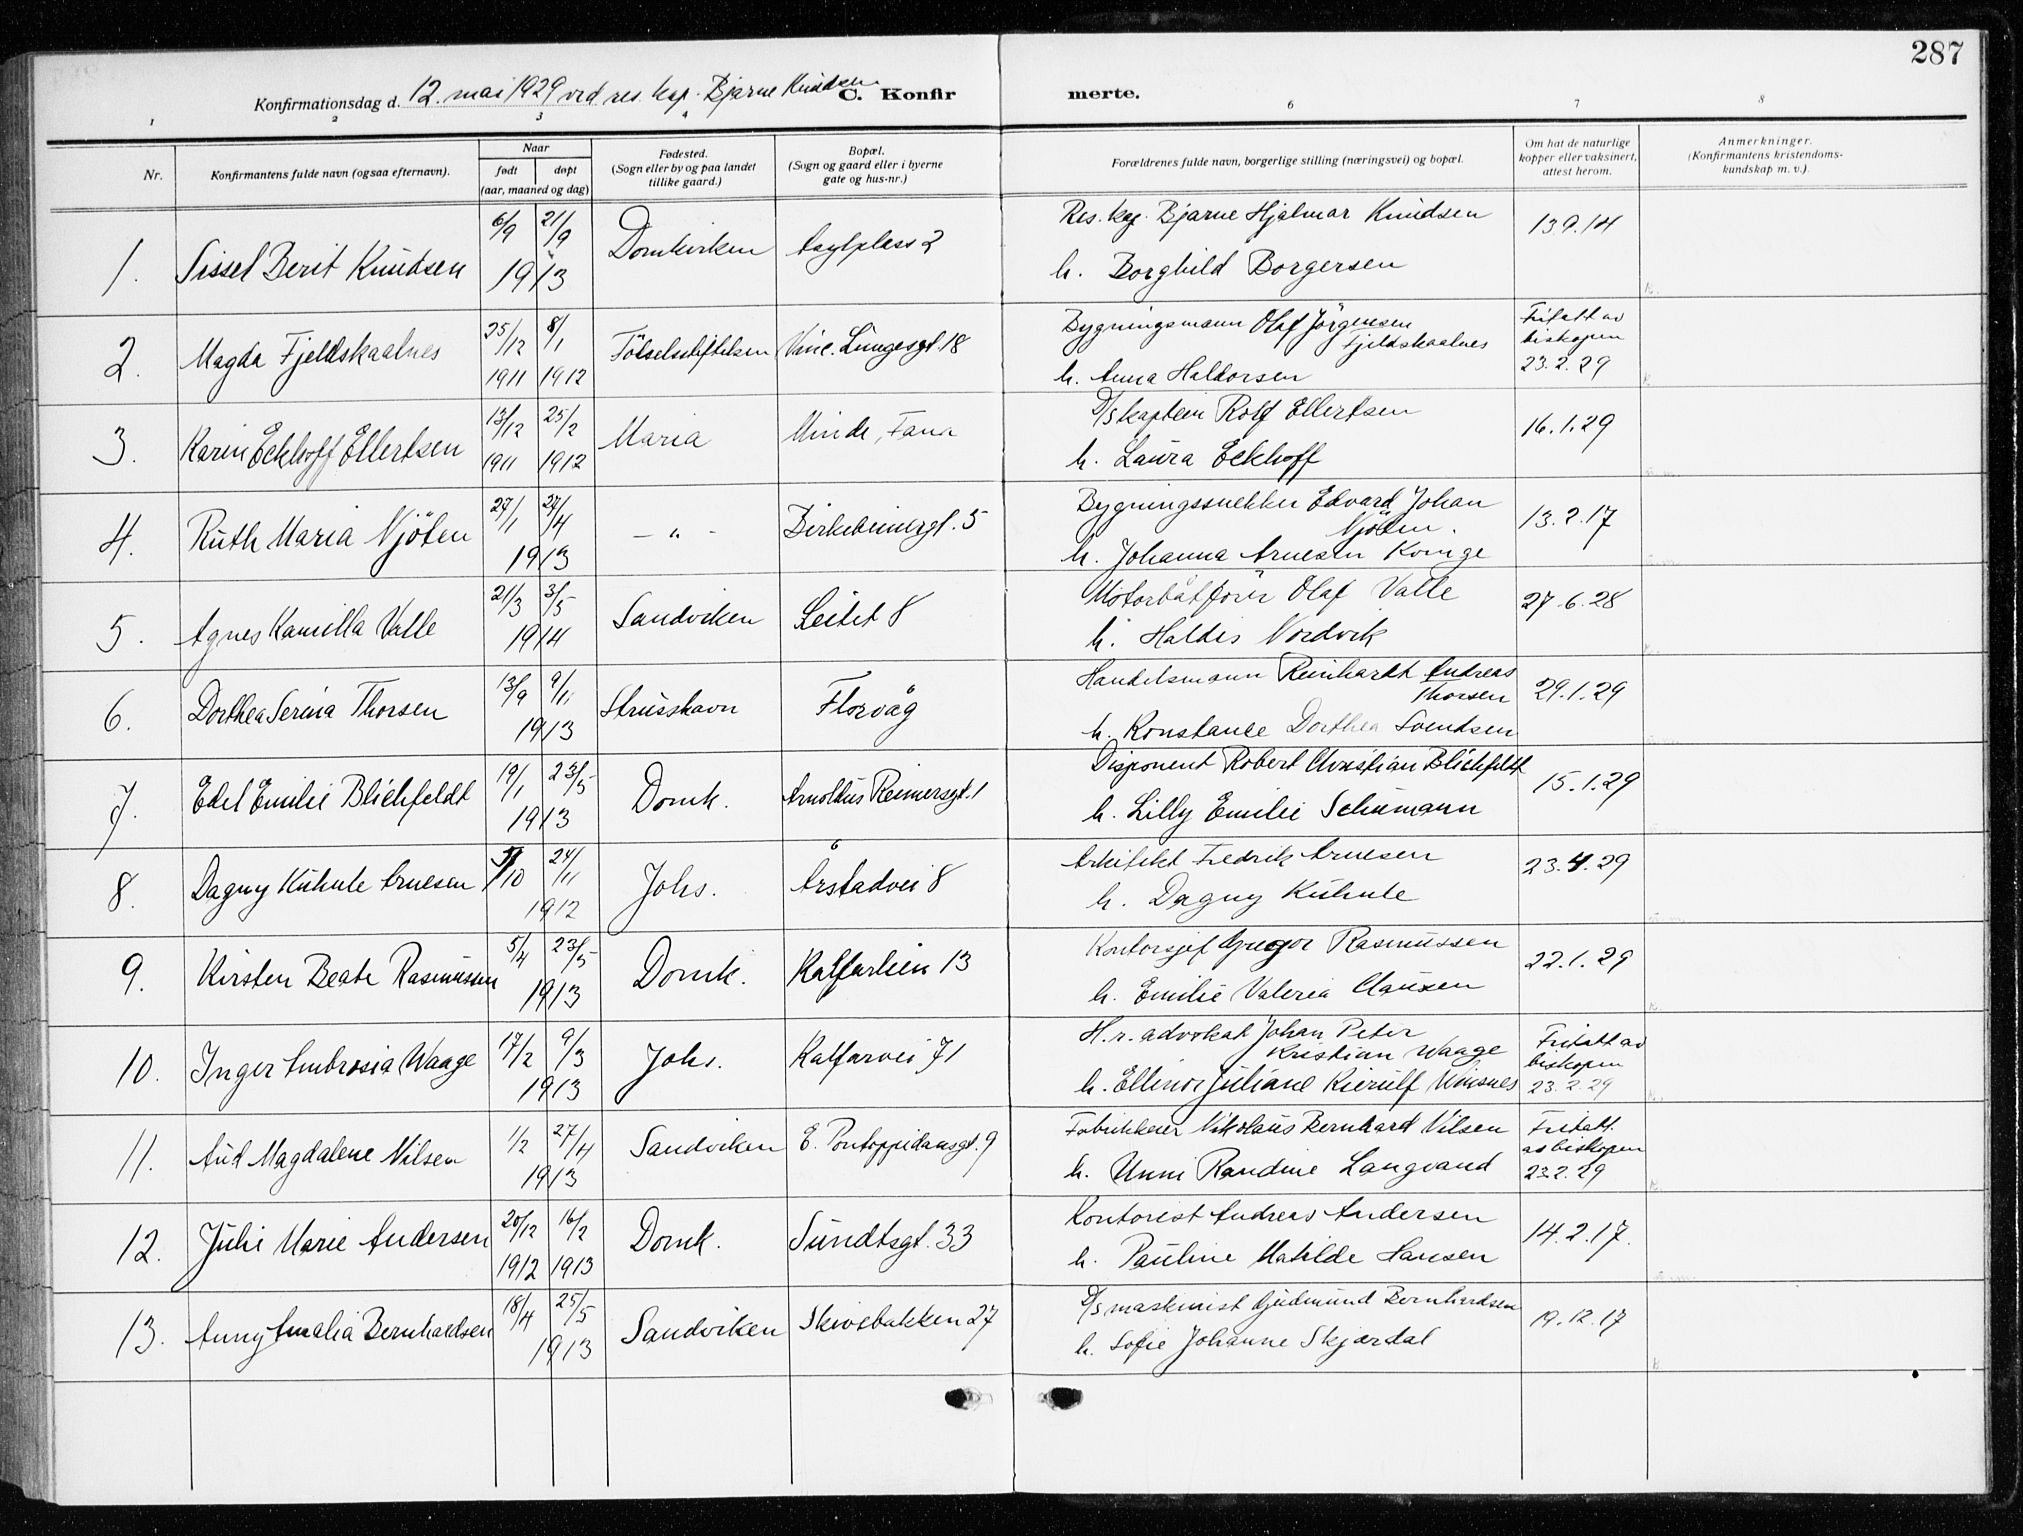 287
Konfirmationsdag d. 12. mai 1929 ved res. kap. Bjarne Knudsen C. Konfir merte.
1 2 3 4 6 7 8
Nr. Konfirmantens fulde navn (ogsaa efternavn). Naar født døpt (aar, maaned og dag) Fødested. (Sogn eller by og paa landet tillike gaard.) Bopæl. (Sogn og gaard eller i byerne gate og hus-nr.) Forældrenes fulde navn, borgerlige stilling (næringsvei) og bopæl. Om hat de naturlige kopper eller vaksinert, attest herom. Anmerkninger. (Konfirmantens kristendomskundskap m. v.).
1. Sissel Berit Knudsen 6/9 21/9 1913 Domkirken Asylplass 2 Res. kap. Bjarne Hjalmar Knudsen 13.9.14
h. Borghild Borgersen
2. Magda Fjeldskaalnes 25/12 1911 8/1 1912 Fötselsstiftelsen Vinc. Lungesgt. 18 Bygningsmann Olaf Jörgensen Fjeldskaalnes Fritatt av biskopen 23.2.29
h. Anna Haldorsen
3. Karin Eckhoff Ellertsen 13/12 1911 25/2 1912 Maria Minde, Fana D/S kaptein Rolf Ellertsen 16.1.29
h. Laura Eckhoff
4. Ruth Maria Njöten 27/1 27/4 1913 - " - Birkebeinergt. 5 Bygningssnekker Edvard Johan Njöten. 13.2.17
h. Johanna Arnesen Kvinge
5. Agnes Kamilla Valle 21/3 3/5 1914 Sandviken Leitet 8 Motorbåtförer Olaf Valle 27.6.28
h. Haldis Nordvik
6. Dorthea Serina Thorsen 13/9 9/11 1913 Strusshavn Florvåg Handelsmann Reinhardt Andreas Thorsen 29.1.29
h. Konstance Dorthea Svendsen
7. Edel Emilie Blichfeldt 19/1 23/5 1913 Domk. Arnoldus Reimersgt. 1 Disponent Robert Christian Blichfeldt 15.1.29
h. Lilly Emilie Schumann
8. Dagny Kuhnle Arnesen /10 24/11 1912 Johs. Årstadvei 8 Arkitekt Fredrik Arnesen 23.4.29
h. Dagny Kuhnle
9. Kirsten Beate Rasmussen 5/4 23/5 1913 Domk. Kalfarlien 13 Kontorsjef Gregor Rasmussen 22.1.29
h. Emilie Valeria Clausen
10. Inger Ambrosia Waage 17/2 9/3 1913 Johs. Kalfarvei 71 H.r. advokat Johan Peter Kristian Waage Fritatt av biskopen 23.2.29
h. Ellinor Juliane Kierulf Wiisnes
11. Aud Magdalene Nilsen 1/2 27/4 1913 Sandviken E. Pontoppidansgt. 9 Fabrikkeier Nikolaus Bernhard Nilsen Fritatt av biskopen 23.2.29
h. Unni Randine Langvand
12. Julie Marie Andersen 20/12 1912 16/2 1913 Domk. Sundtsgt. 33 Kontorist Andreas Andersen 14.2.17.
h. Pauline Matilde Hansen
13. Anny Amalia Bernhardsen 18/4 25/5 1913 Sandviken Skivebakken 27 D/S maskinist Gudmund Bernhardsen 19.12.17
h. Sofie Johanne Skjærdal